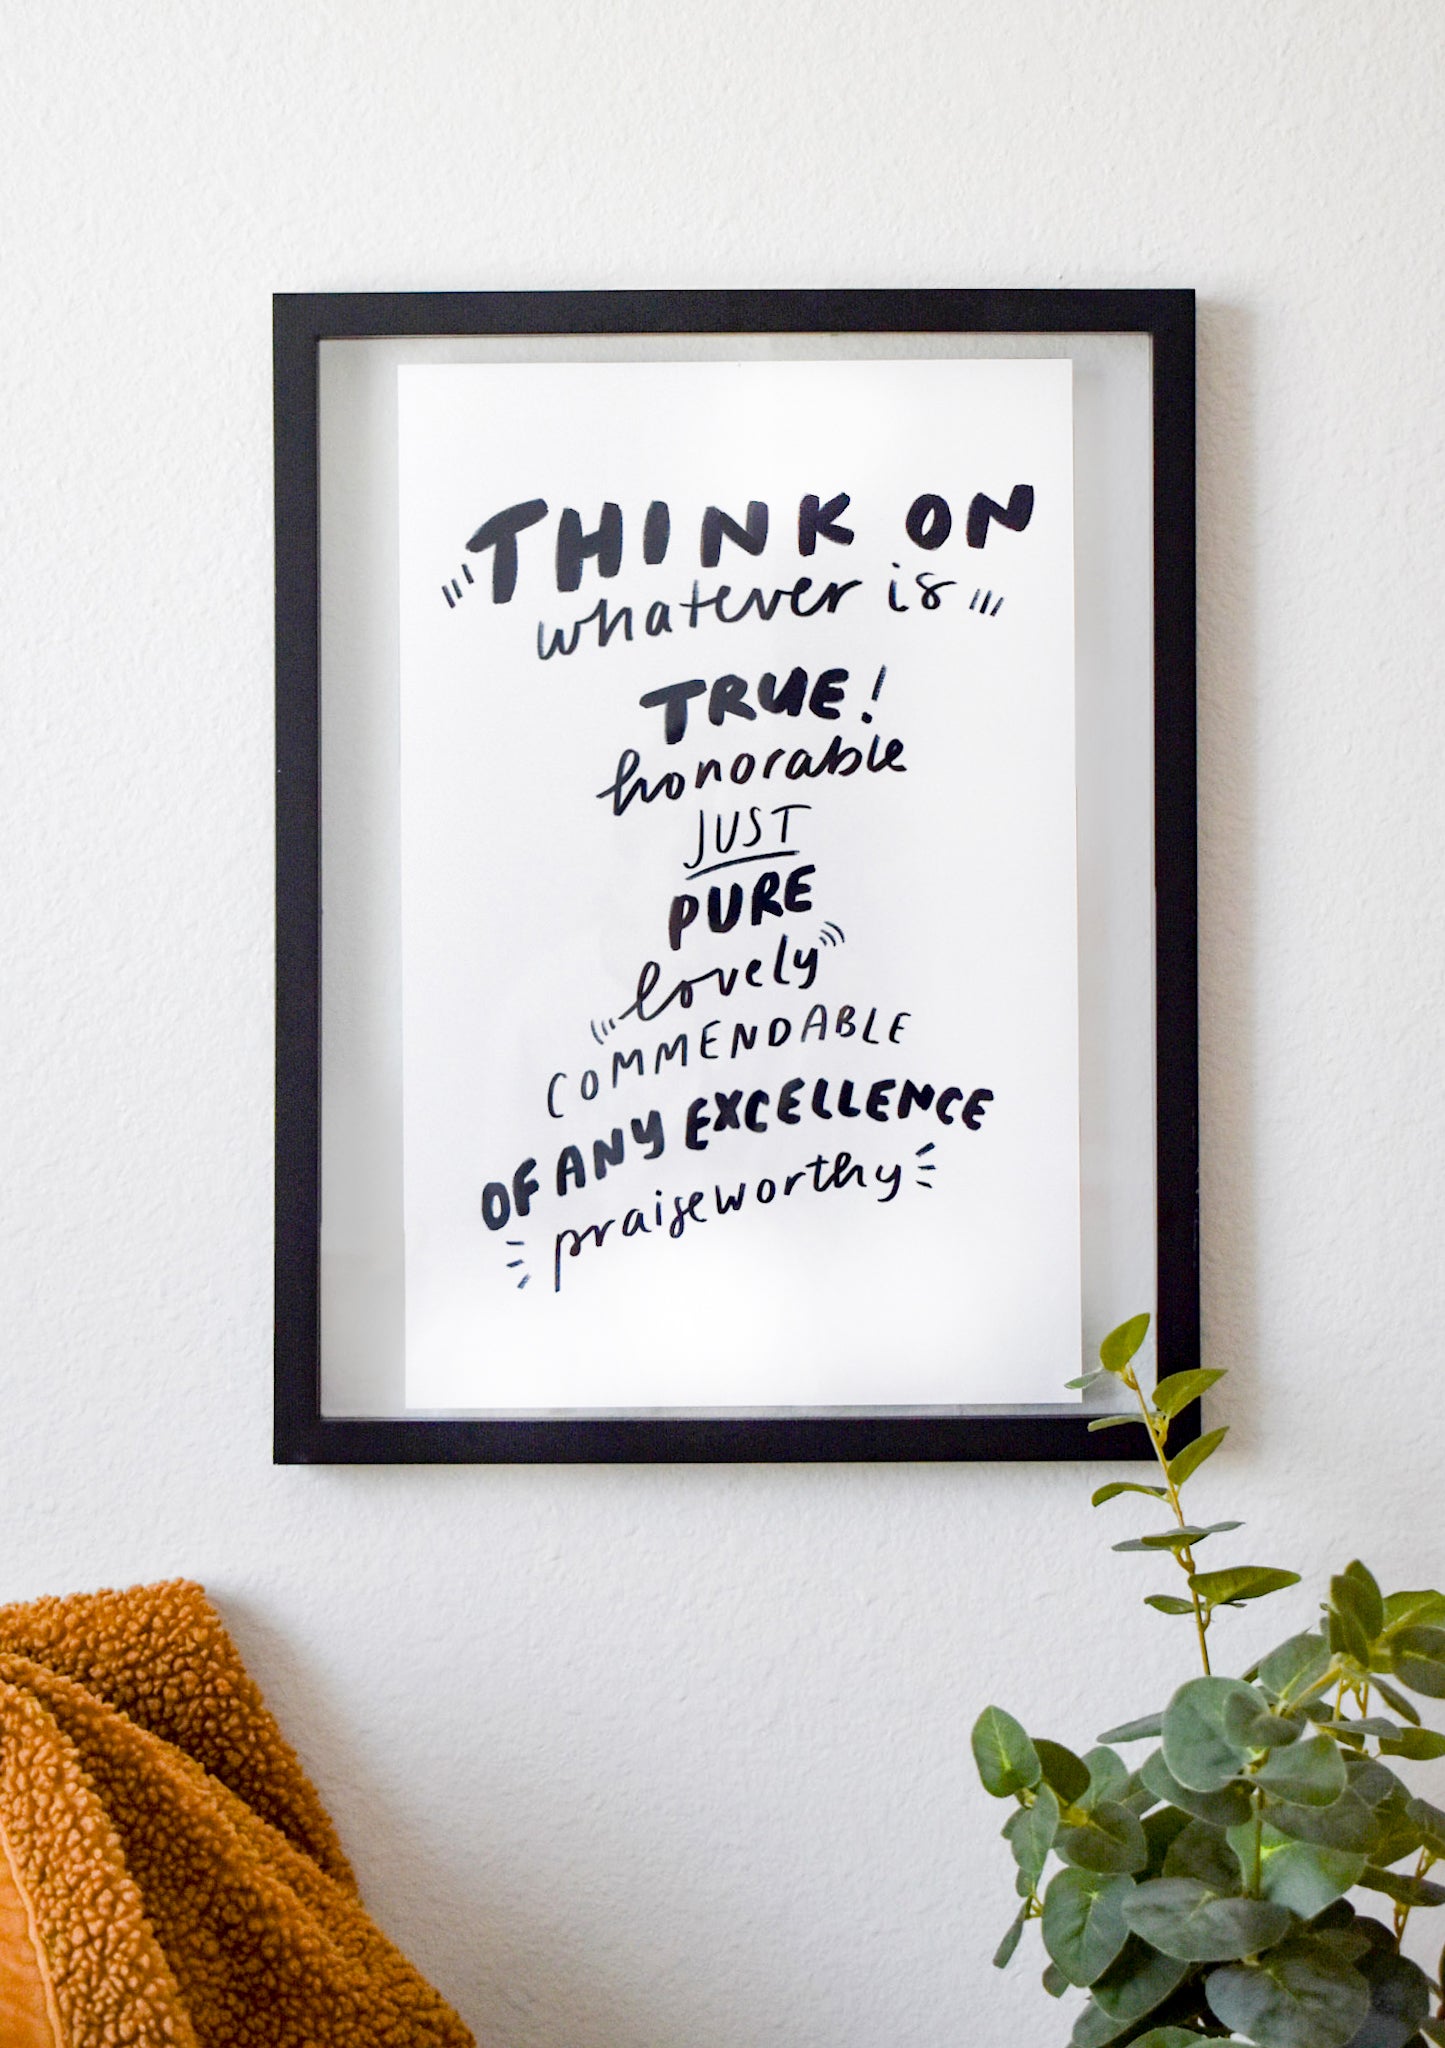 THINK ON
whatever is
TRUE!
honorable
JUST
PURE
lovely
COMMENDABLE
OF ANY EXCELLENCE
praiseworthy